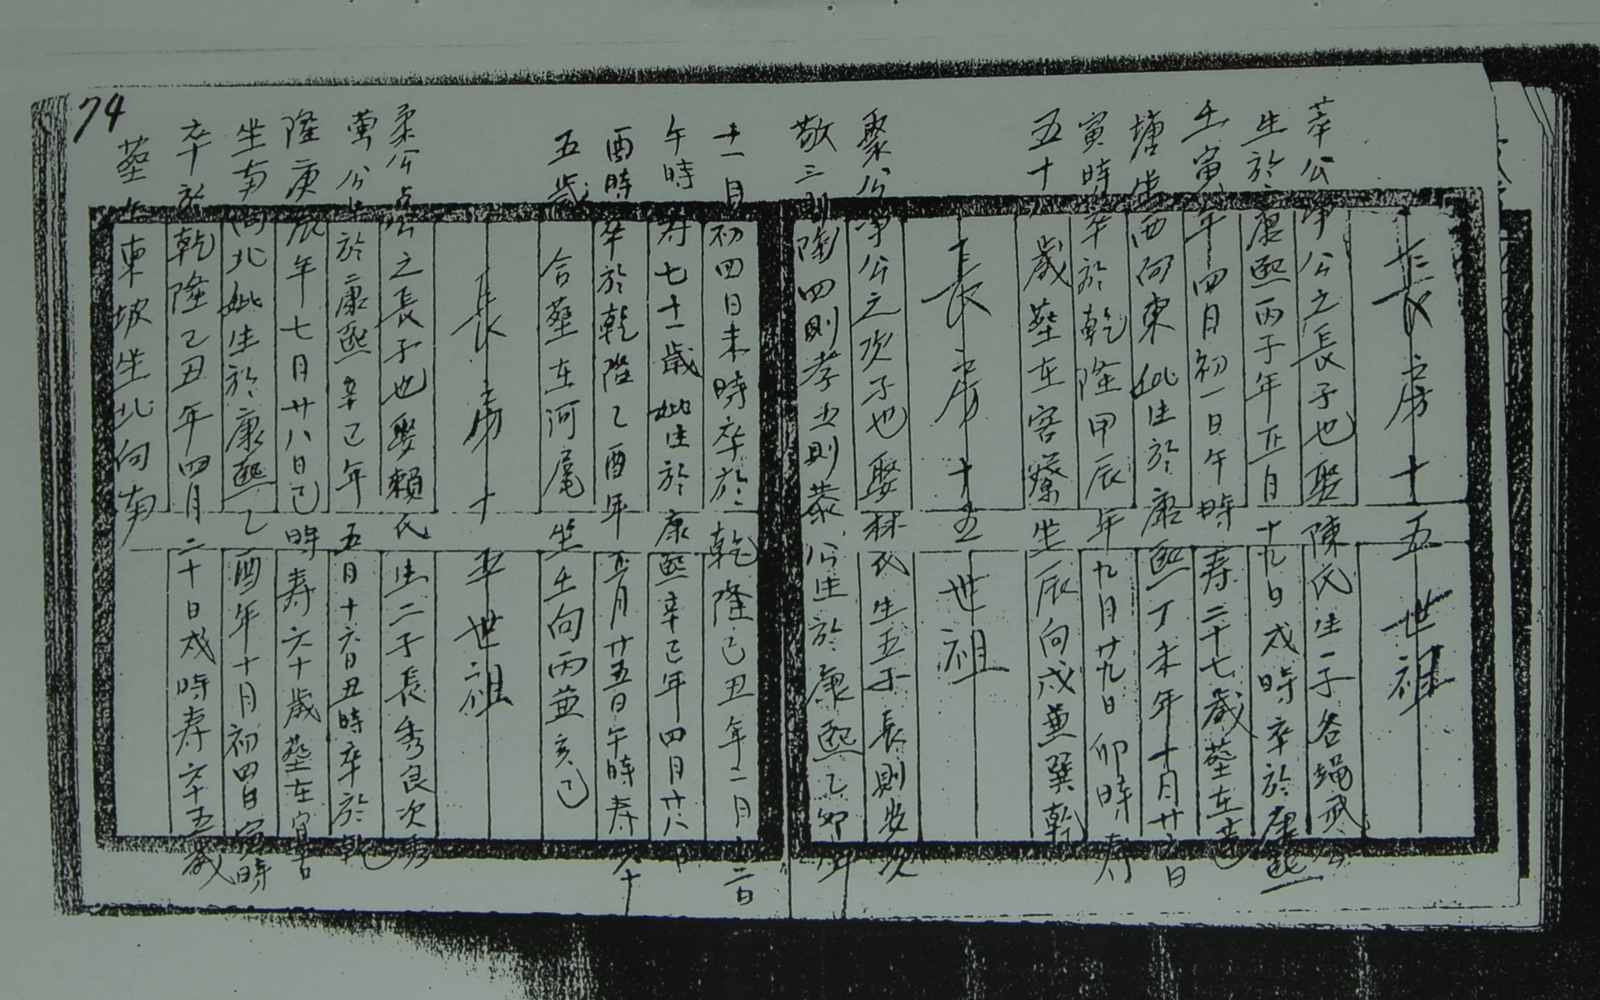 74
長房十五世祖
萃公坤公之長子也娶陳氏生一子名繩武公
生於康熙丙子年正月十九日戌時卒於康熙
壬寅年四月初一日午時寿二十七歲塟在蓮
塘坐西向東妣生於康熙丁未年十月廿六日
寅時卒於乾隆甲辰年九月廿九日卯時寿
五十八歲塟在窖寮坐辰向戌兼巽乾
長房十五世祖
聚公坤公之次子也娶林氏生五子長則安次
敬三則陶四則孝五則恭公生於康熙乙卯年
十一月初四日未時卒於乾隆己丑年二月十二日
午時寿七十一歲妣生於康熙辛巳年四月廿八日
酉時卒於乾隆乙酉年正月廿五日午時寿六十
五歲合塟在河尾坐壬向丙兼亥巳
長房十五世祖
柔公公之長子也娶賴氏生二子長秀良次秀
萬公生於康熙辛巳年五月十六日丑時卒於乾
隆庚辰年七月廿八日巳時寿六十歲塟在
坐南向北妣生於康熙乙酉年十月初四日寅時
卒於乾隆己丑年四月二十日戌時寿六十五歲
塟在東坡坐北向南